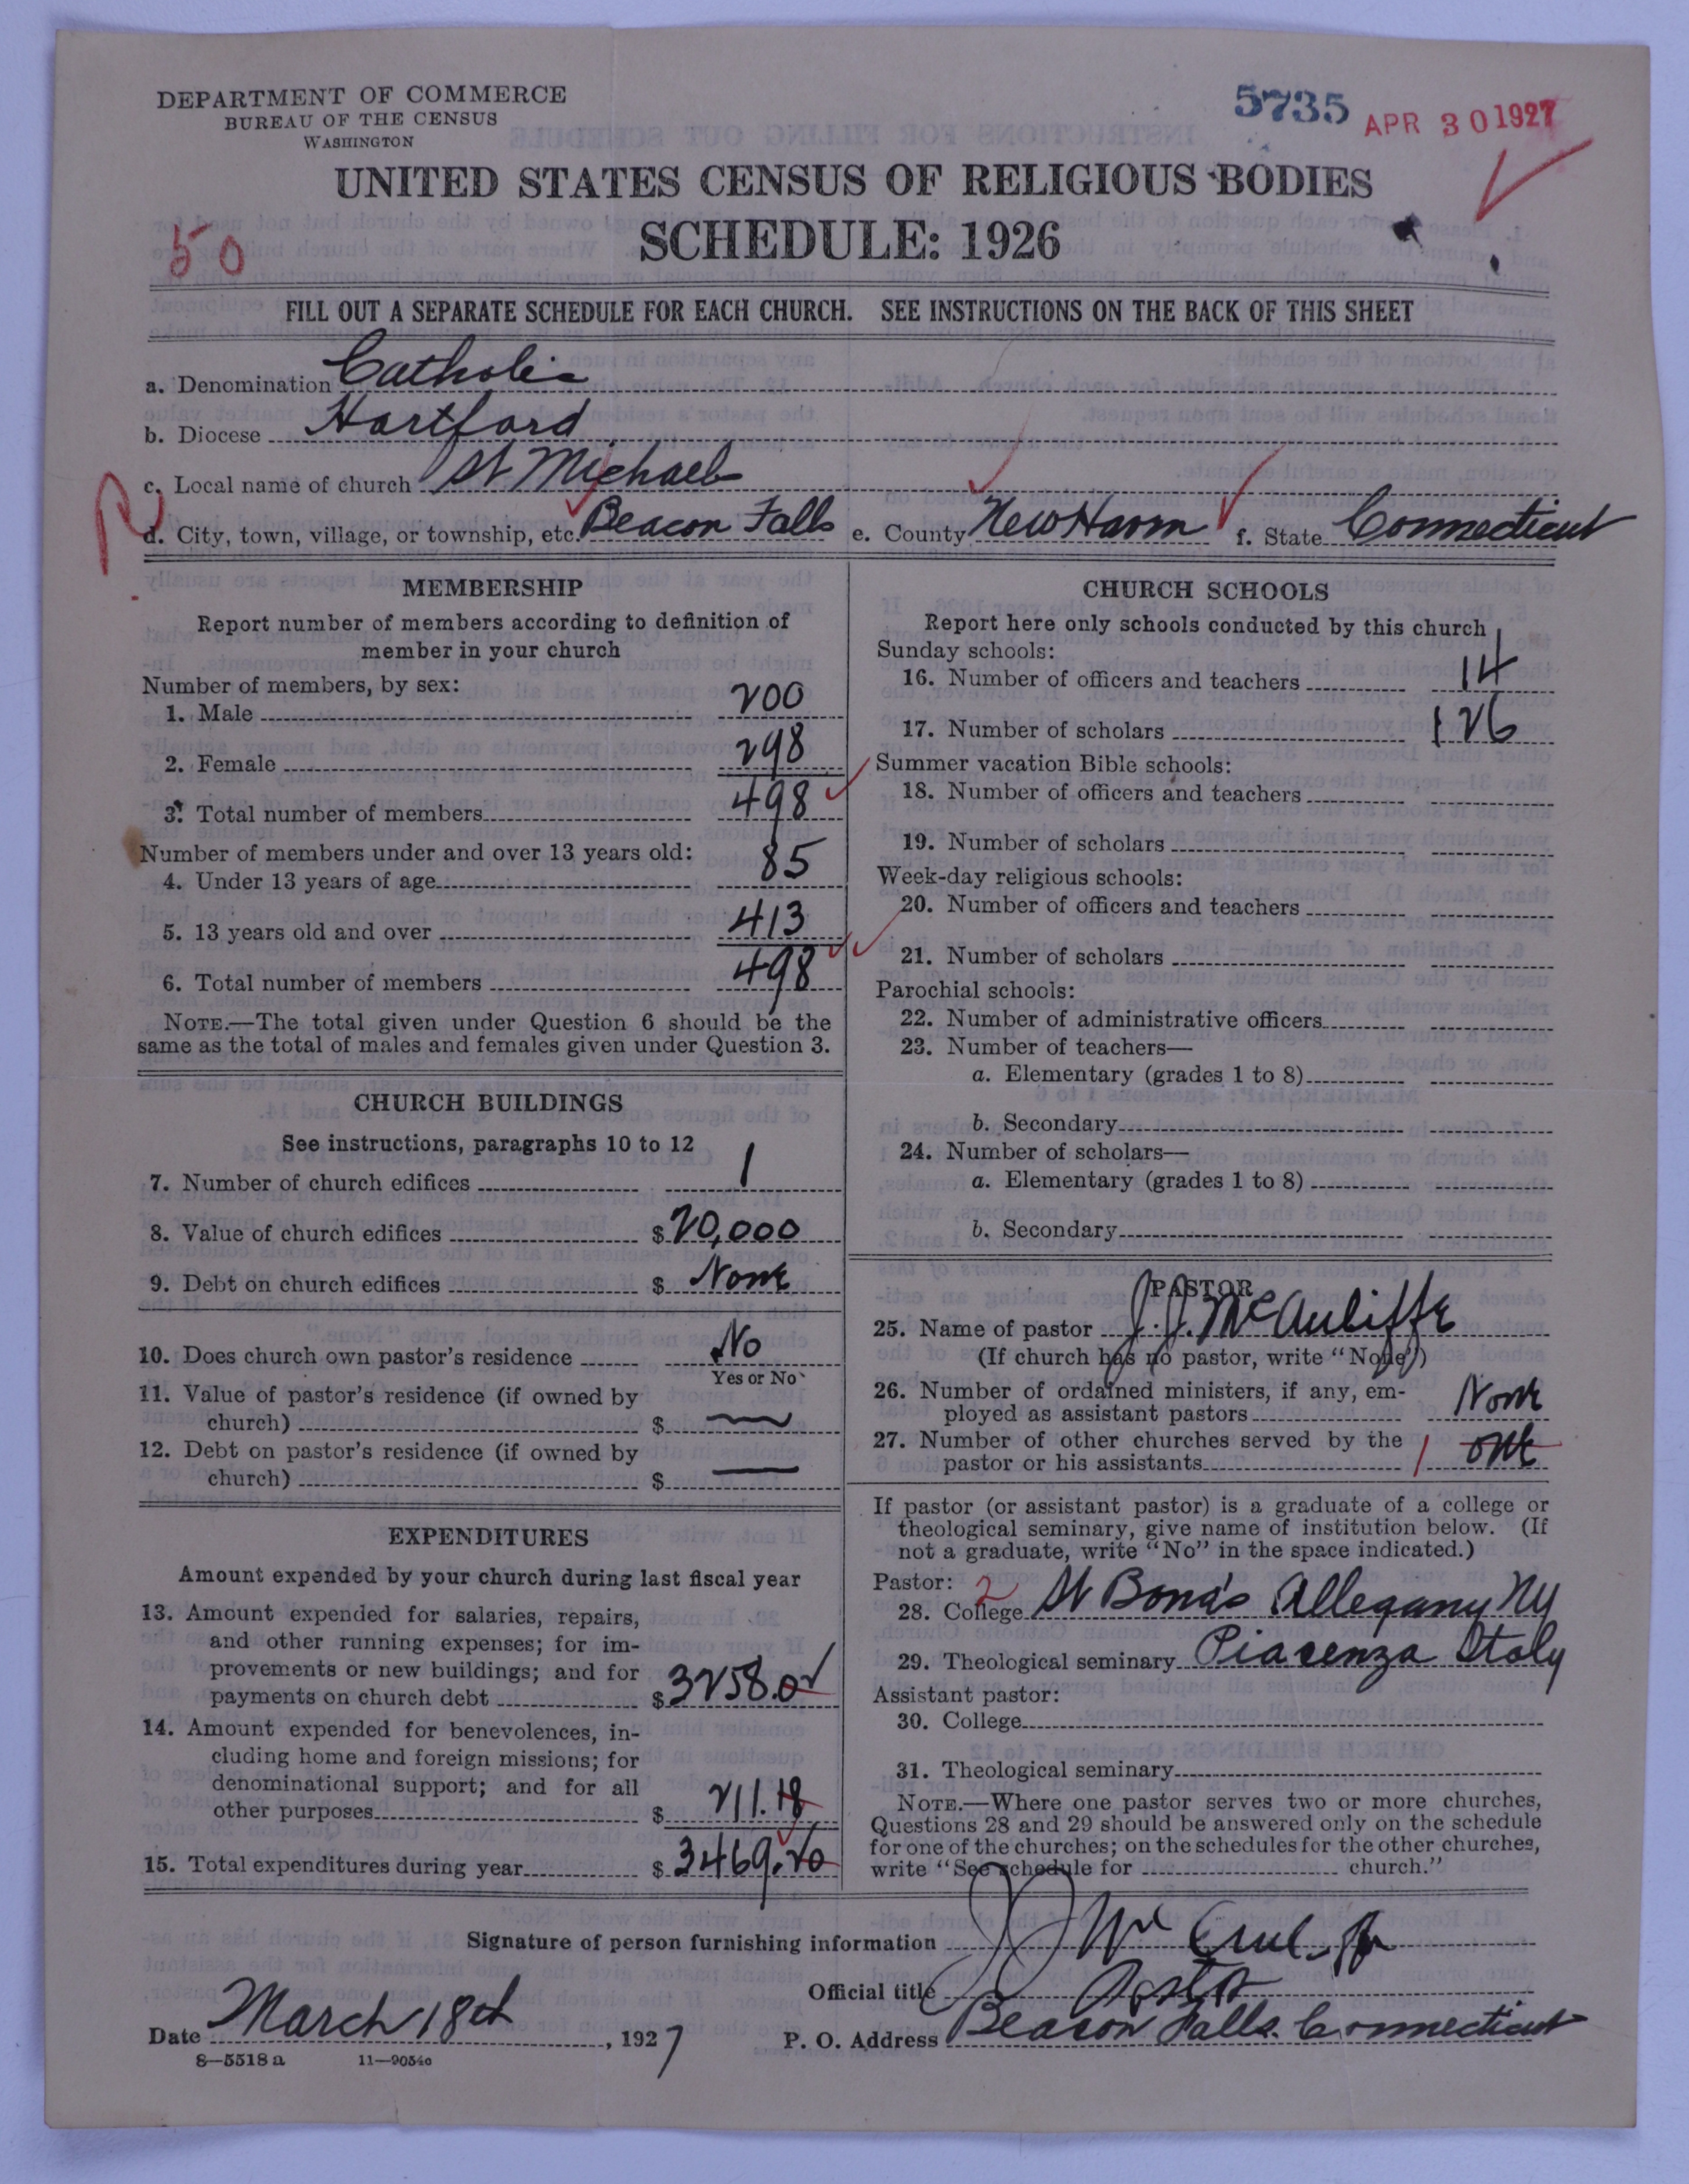 DEPARTMENT OF COMMERCE
BUREAU OF THE CENSUS
WASHINGTON
5735 APR 30 1927
UNITED STATES CENSUS OF RELIGIOUS BODIES
SCHEDULE: 1926
50
FILL OUT A SEPARATE SCHEDULE FOR EACH CHURCH. SEE INSTRUCTIONS ON THE BACK OF THIS SHEET
a. Denomination Catholic
b. Diocese Hartford
c. Local name of church St Michaels
d. City, town, village, or township, etc. Beacon Falls e. County New Haven f. State Connecticut
MEMBERSHIP
Report number of members according to definition of
member in your church
Number of members, by sex:
1. Male 200
2. Female 298
3. Total number of members 498
Number of members under and over 13 years old:
4. Under 13 years of age 85
5. 13 years old and over 413
6. Total number of members 498
NOTE.—The total given under Question 6 should be the
same as the total of males and females given under Question 3.
CHURCH BUILDINGS
See instructions, paragraphs 10 to 12
7. Number of church edifices 1
8. Value of church edifices $ 20,000
9. Debt on church edifices $ None
10. Does church own pastor's residence No
Yes or No
11. Value of pastor's residence (if owned by
church) $
12. Debt on pastor's residence (if owned by
church) $
EXPENDITURES
Amount expended by your church during last fiscal year
13. Amount expended for salaries, repairs,
and other running expenses; for im-
provements or new buildings; and for
payments on church debt $ 3258.02
14. Amount expended for benevolences, in-
cluding home and foreign missions; for
denominational support; and for all
other purposes $ 211.18
15. Total expenditures during year $ 3469.20
CHURCH SCHOOLS
Report here only schools conducted by this church
Sunday schools:
16. Number of officers and teachers 14
17. Number of scholars 126
Summer vacation Bible schools:
18. Number of officers and teachers
19. Number of scholars
Week-day religious schools:
20. Number of officers and teachers
21. Number of scholars
Parochial schools:
22. Number of administrative officers
23. Number of teachers—
a. Elementary (grades 1 to 8)
b. Secondary
24. Number of scholars—
a. Elementary (grades 1 to 8)
b. Secondary
PASTOR
25. Name of pastor J. J. McAuliffe
(If church has no pastor, write "None")
26. Number of ordained ministers, if any, em-
ployed as assistant pastors None
27. Number of other churches served by the
pastor or his assistants 1 one
If pastor (or assistant pastor) is a graduate of a college or
theological seminary, give name of institution below. (If
not a graduate, write "No" in the space indicated.)
Pastor: 2
28. College St Bona's Allegany NY
29. Theological seminary Piacenza Italy
Assistant pastor:
30. College
31. Theological seminary
NOTE.—Where one pastor serves two or more churches,
Questions 28 and 29 should be answered only on the schedule
for one of the churches; on the schedules for the other churches,
write "See schedule for church."
Signature of person furnishing information J J McAuliffe
Official title Pastor
Date March 18th, 1927 P. O. Address Beacon Falls. Connecticut
8—5518 a 11—9054a